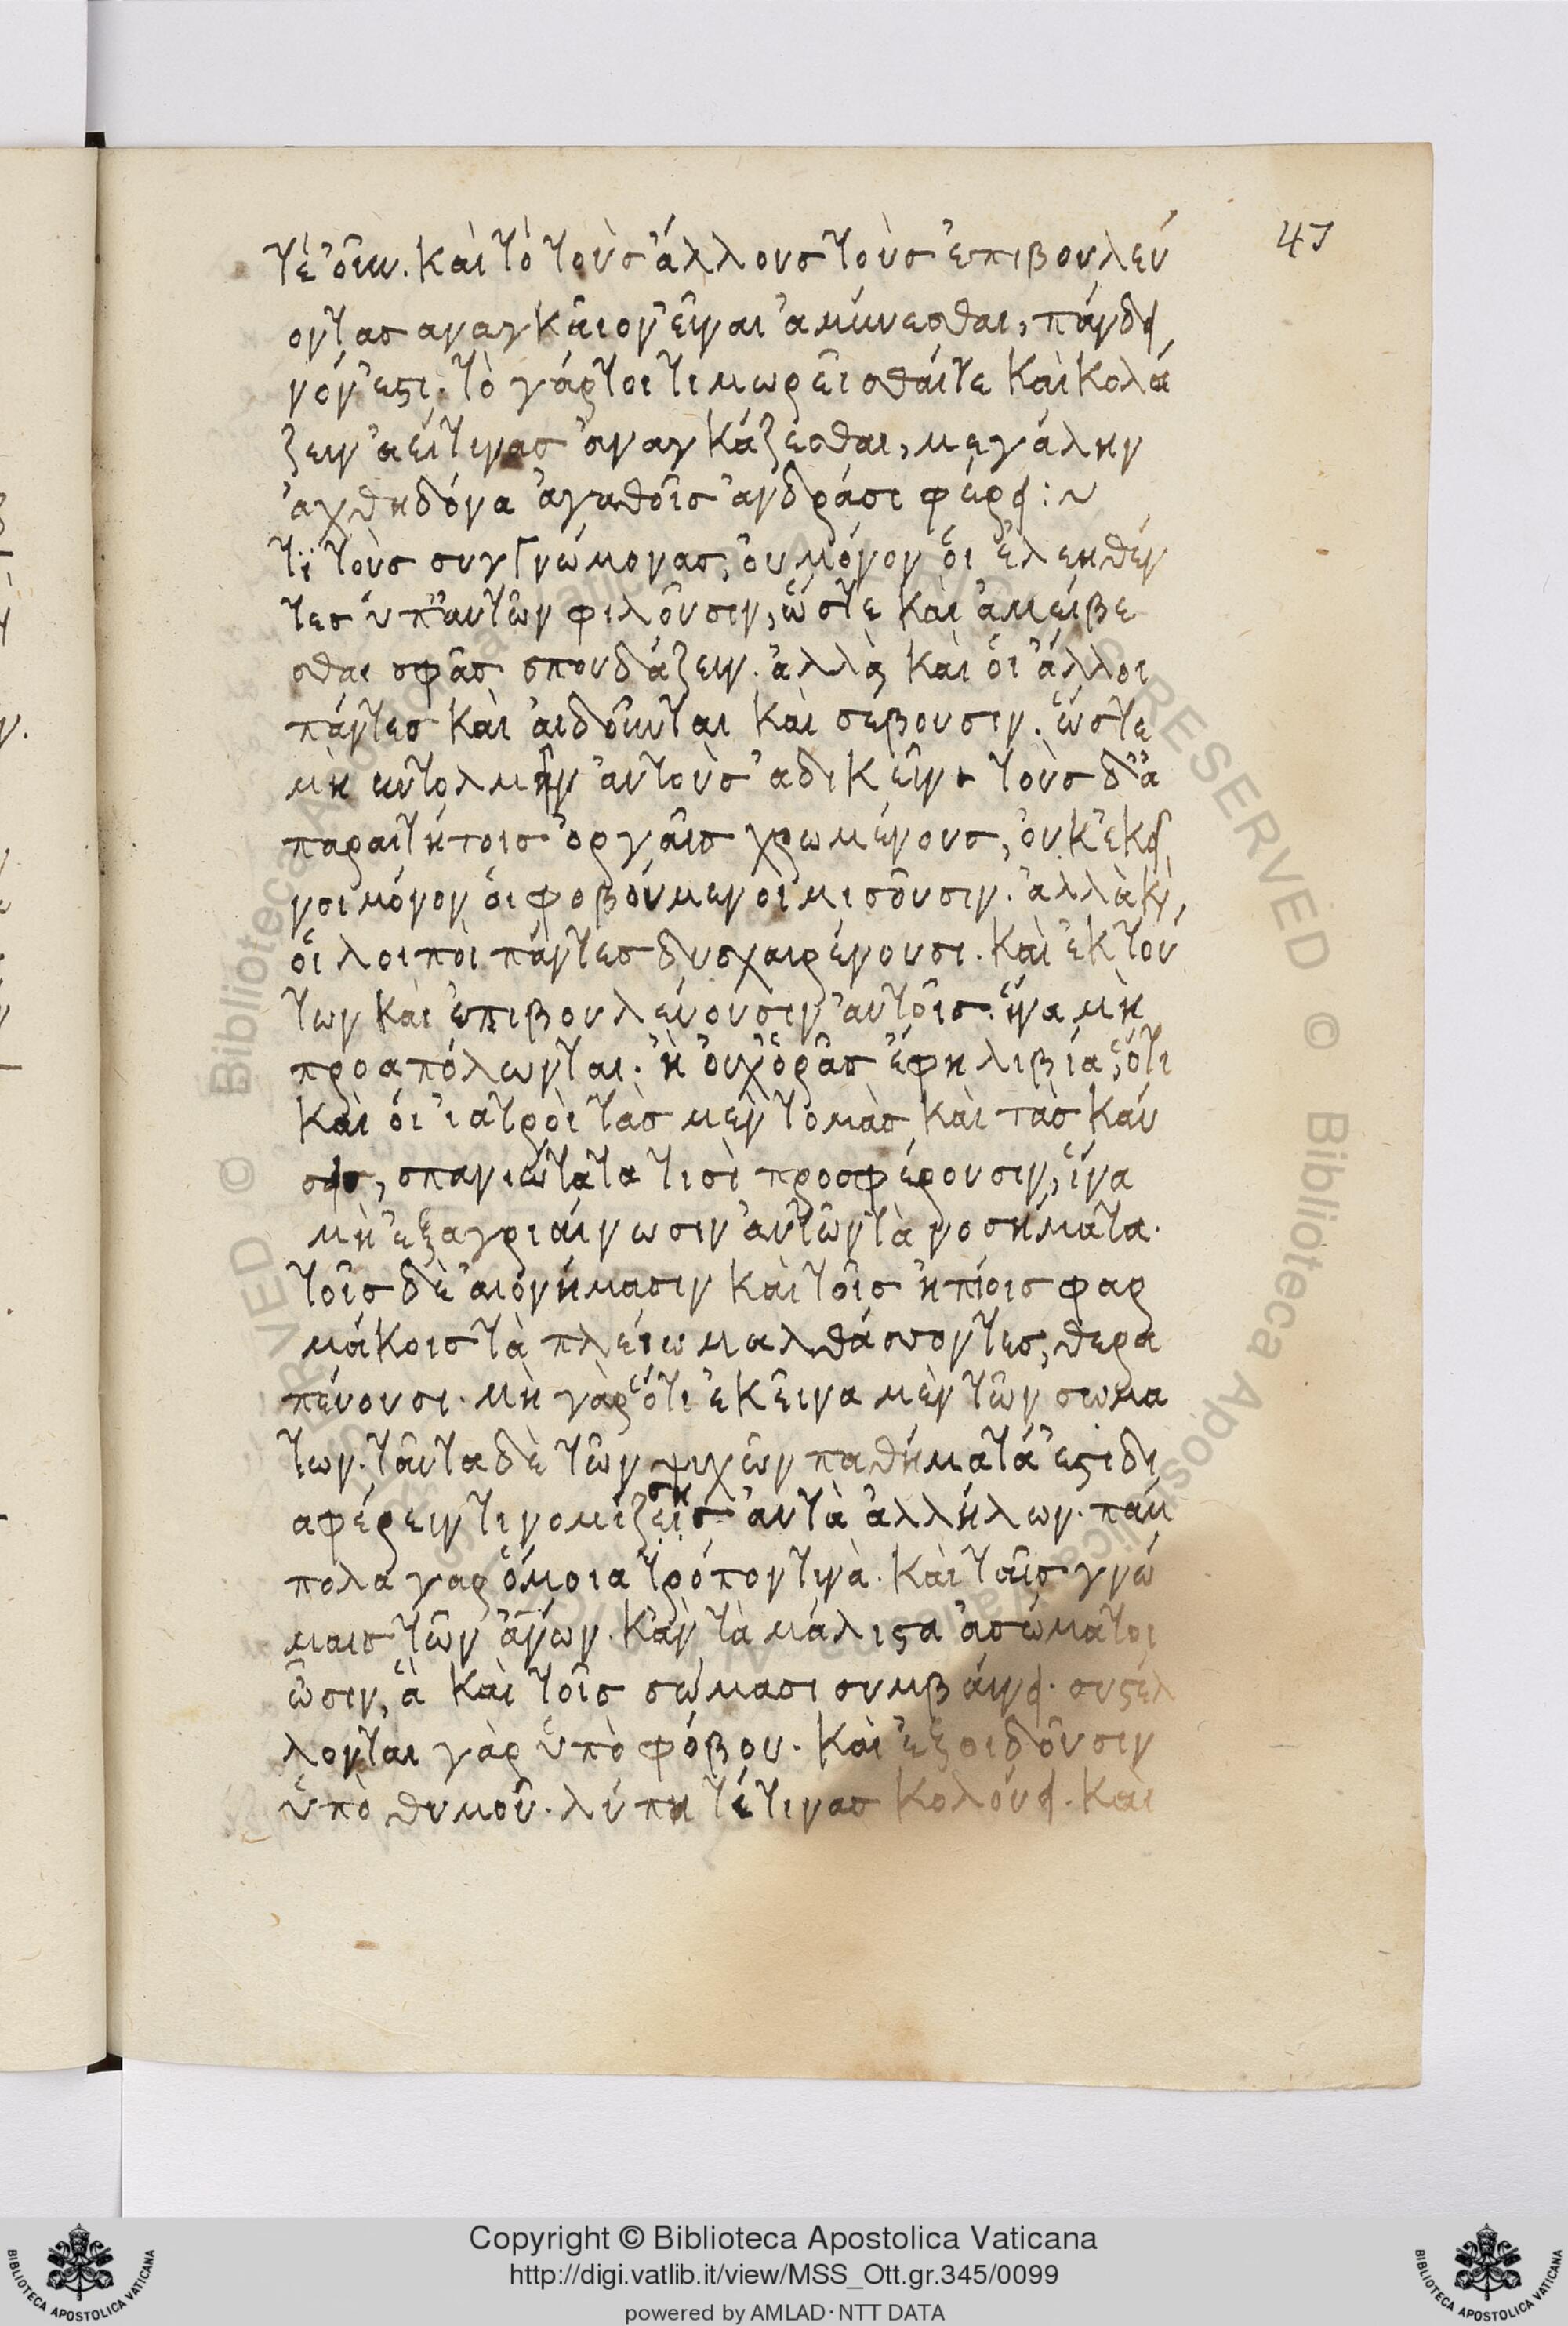 47
τέ ὄιω. καὶ τὸ τοὺς ἄλλους τοὺς ἐπιβουλεύ
οντας αναγκᾶιον εἶναι ἀμύνεσθαι, πάνδει
νόν ἐστι. τὸ γάρ τοι τιμωρεῖσθαίτε καὶ κολά
ζειν ἀεί τινας ἀναγκάζεσθαι, μεγάλην
ἀχθηδόνα ἀγαθοῖς ἀνδράσι φέρει:~
τϊ τοὺς συγγνώμονας, ὀυ μόνον ὁι ἐλεηθέν
τες ὑπ' αυτῶν φιλοῦσιν, ὥστε καὶ ἀμείβε
σθαι σφᾶς σπουδάζειν. ἀλλὰ καὶ ὁι ἄλλοι
πάντες καὶ ἀιδοῦνται καὶ σέβουσιν. ὥστε
μὴ ευτολμῆν ἀυτοὺς ἀδικεῖν. τοὺς δ' ἀ
παραιτήτοις ὀργᾶις χρωμένους, ὀυκ ἐκεῖ
νοι μόνον ὁι φοβούμενοί μισοῦσιν. ἀλλὰ κὶ
ὁι λοιποὶ πάντες δυσχαιρένουσι. καὶ ἐκ τού
των καὶ ἐπιβουλεύουσιν ἀυτοῖς. ἵνα μὴ
προαπόλωνται. ἢ ὀυχ ὁρᾶς ἔφη λιβία, ὅτι
καὶ ὁι ἰατροὶ τὰς μὲν τομὰς καὶ τὰς καύ
σεις, σπανιώτατα τισὶ προσφέρουσιν, ἵνα
μὴ ἐξαγριαίνωσιν ἀυτῶν τὰ νοσήματα.
τοῖς δὲ ἀιονήμασιν καὶ τοῖς ἠπίοις φαρ
μάκοις τὰ πλείω μαλθάσσοντες, θερα
πεύουσι. μὴ γὰρ ὅτι ἐκεῖνα μὲν τῶν σωμα
των. ταῦτα δὲ τῶν ψυχῶν παθήματά ἐστι δι
αφέρειν τι νομίζεις ση ἀυτὰ ἀλλήλων. παμ
πολα γαρ ὅμοια τρόπον τινὰ. καὶ ταῖς γνώ
μαις τῶν ἀνων. κἂν τὰ μάλιστα ἀσώματοι
ὦσιν, ἃ καὶ τοῖς σώμασι συμβαίνει. συστέλ
λονται γὰρ ὑπὸ φόβου. καὶ ἐξοιδοῦσιν
ὑπὸ θυμοῦ. λύπη τέ τινας κολούει. καὶ
Copyright © Biblioteca Apostolica Vaticana
http://digi.vatlib.it/view/MSS_Ott.gr.345/0099
powered by AMLAD·NTT DATA